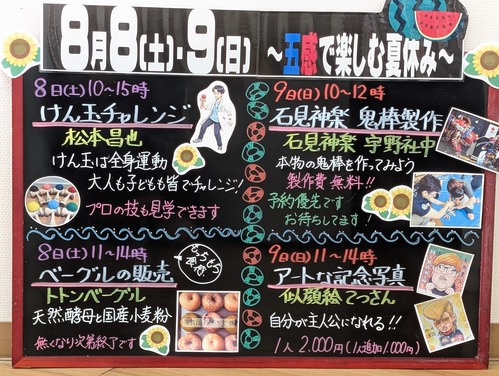 8月8(土)・9(日) ～五感で楽しむ夏休み～
8日(土)10～15時
けん玉チャレンジ
松本昌也
けん玉は全身運動
大人も子どもも皆でチャレンジ!
プロの技も見学できます
9日(日)10～12時
石見神楽 鬼棒製作
石見神楽 宇野社中
本物の鬼棒を作ってみよう
製作費無料!!
予約優先です
お待ちしてます
8日(土)11～14時
ベーグルの販売
トトンベーグル
天然酵母と国産小麦粉
無くなり次第終了です
9日(日)11～14時
アートな記念写真
似顔絵てっさん
自分が主人公になれる!!
1人 2.000円(1人追加1.000円)